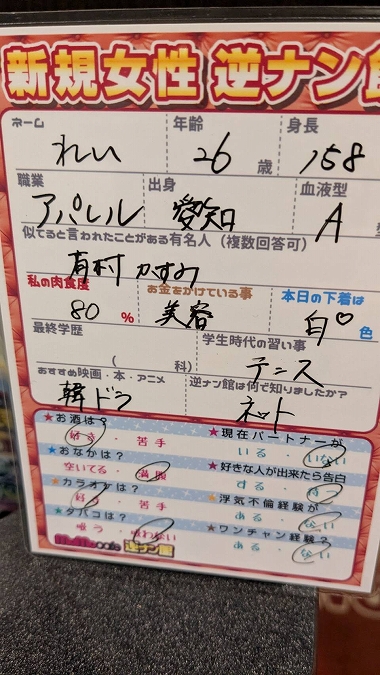 新規女性 逆ナン館
ネーム 年齢 身長
れい 26 歳 158
職業 出身 血液型
アパレル 愛知 A 型
似てると言われたことがある有名人(複数回答可)
有村 かすみ
私の肉食度 お金をかけている事 本日の下着は
80 % 美容 白♡ 色
最終学歴 学生時代の習い事
( 科) テニス
おすすめ映画・本・アニメ 逆ナン館は何で知りましたか?
韓ドラ ネット
★お酒は? ★現在パートナーが
好き・苦手 いる・いない
★おなかは? ★好きな人が出来たら告白
空いてる・満腹 する・待つ
★カラオケは? ★浮気不倫経験が
好き・苦手 ある・ない
★タバコは? ★ワンチャン経験?
吸う・吸わない ある・ない
逆ナン館